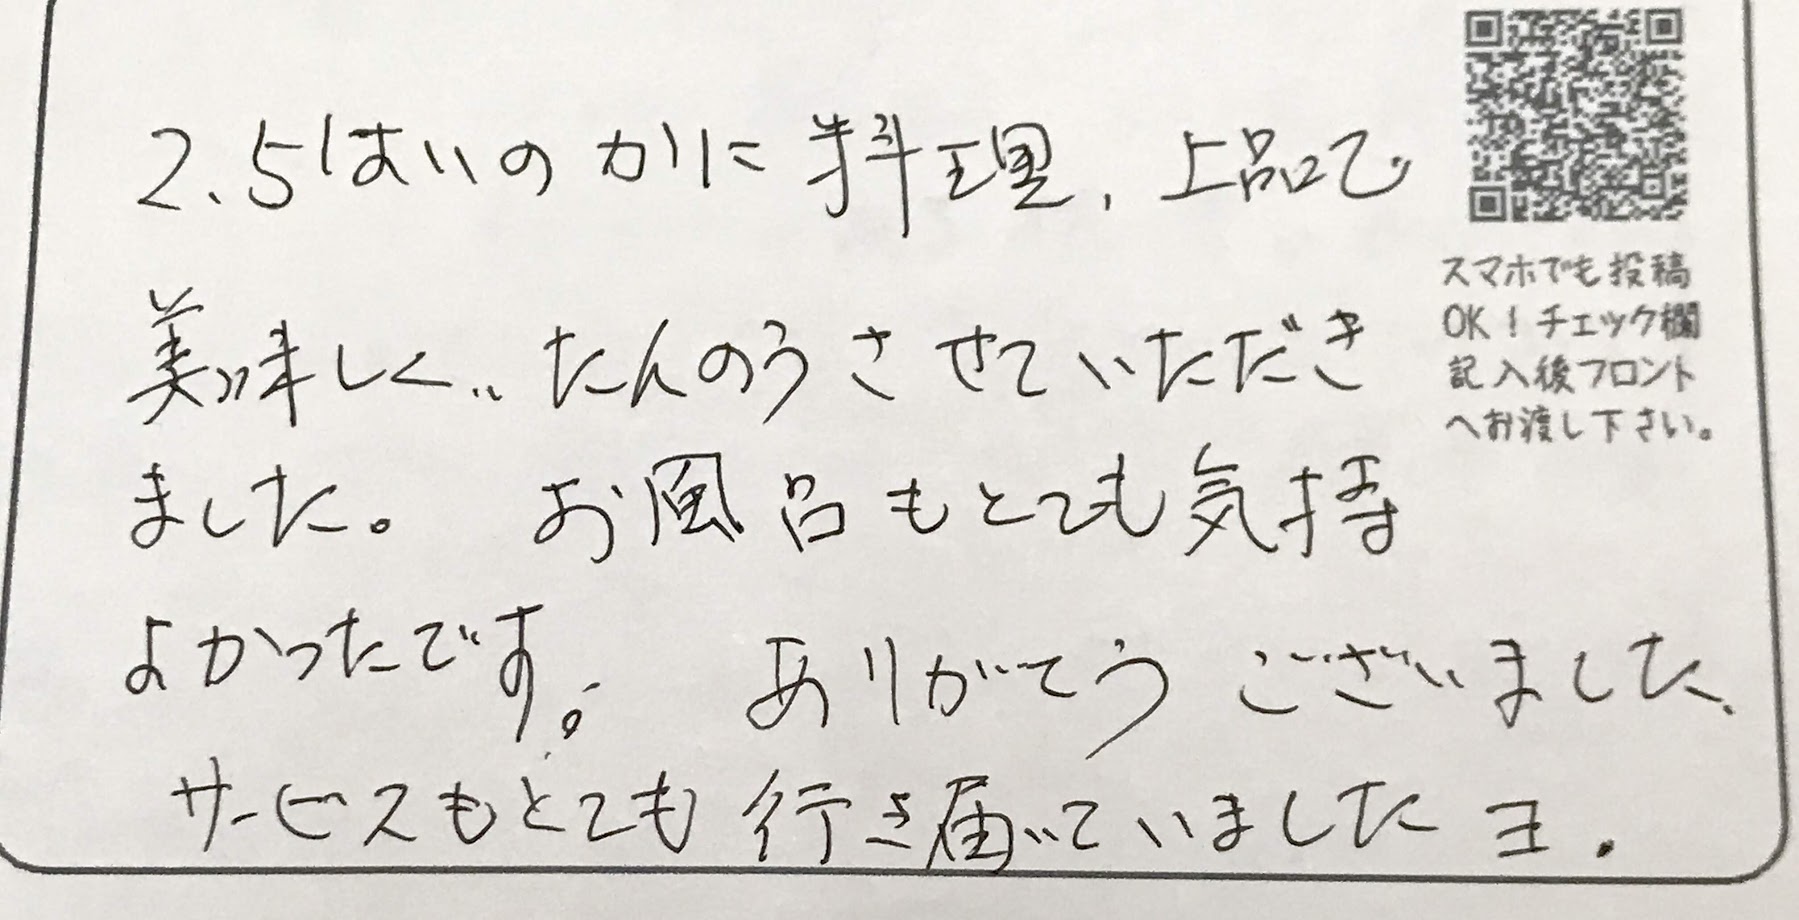 2.5はいのかに料理、上品で
美味しく、たんのうさせていただき
ました。 お風呂もとても気持
よかったです。 ありがとう ございました、
サービスもとても行き届いていましたヨ.
スマホでも投稿
OK!チェック欄
記入後フロント
へお渡し下さい。